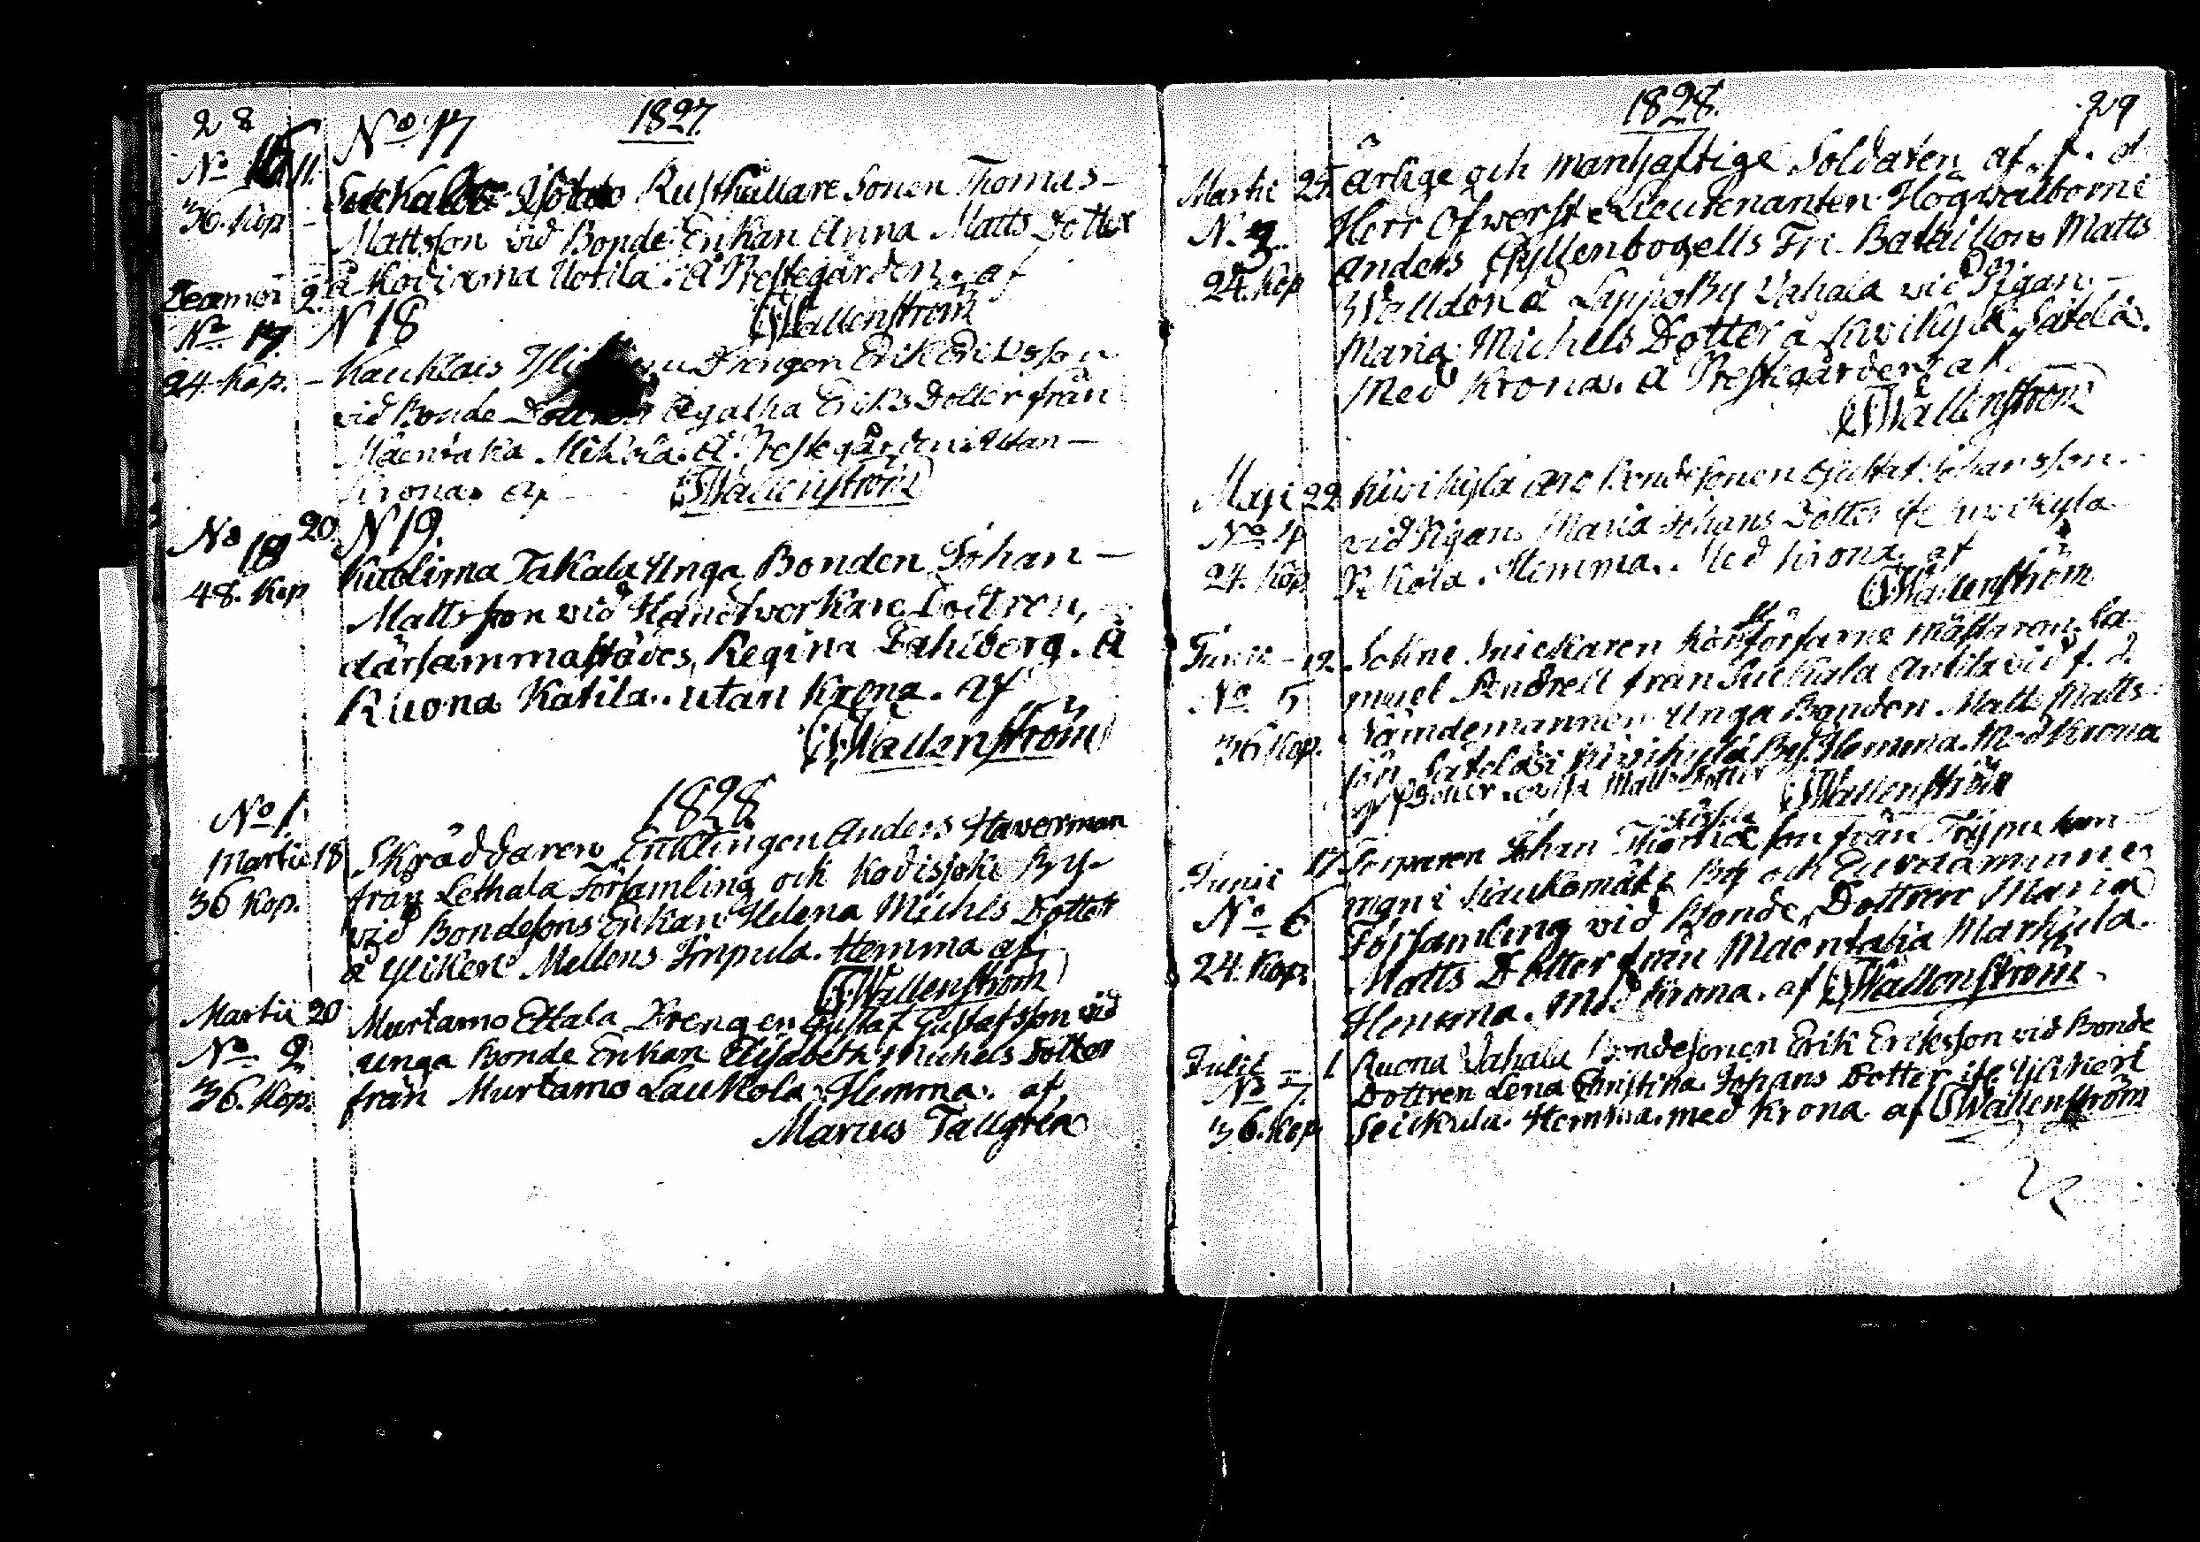 28
1827.
No 17
No 16 11.
36. Kop. Rusthållare Sonen Thomas
Mattsson vid Bonde Enkan Anna Matts Dotter
å Kodixma Uotila. å Prestegården. af
Wallenström
2.
No 17. N 18
24. Kop. Kauklais Drengen Erik Eriksson
vid Bonde Agatha Eriks Dotter från
Mäentaka Mikola. å Prestegården. Utan
Krona. af Wallenström
No 18 20 N 19.
48. Kop Takala Unga Bonden Johan
Mattsson vid Handtverkare Dottren,
därsammastädes, Regina Dahlberg. å
Ruona Katila. utan Krona. af
Wallenström
1828
No 1.
Martii 18 Skräddaren Enklingen Anders Haverman
36 Kop. från Lethala Församling och Kodisjoki By
vid Bondesons Enkan Helena Michls Dotter
å Ylikert Mellens Timpula. Hemma af
Wallenström
Martii 20 Murtamo Ettala Drengen Gustaf Gustafsson vid
No 2 unga Bonde Enkan Elisabeth Michels Dotter
36. Kop. från Murtamo Laukola. Hemma. af
Marcus Tallgren
1828. 29
Martii 25 ärlige och manhaftige Soldaten af f. d
N. 3. Herr Öfwerste Lieutenanten Högwälborne
24. Kop Anders Gyllenbögells Fri Bataillon Matts
Walldén å Lyppo By Vahala vid Pigan
Maria Michels Dotter å Kivikylä Satela.
Med Krona. å Prestegården af.
Wallenström
Maji 22 Kivikylä Bondesonen Gustaf Johansson
No 4 vid Pigan Maria Johans Dotter Kivikylä
24. Kop Hemma. Med Krona. af
Wallenström
Junii 12. Sockne Snickaren
No 5 muel Andrell från Suckala Antila vid f. d.
36 Kop. Nämdemannen Unga Bonden Matt Matts
Kivikylä By. Hemma. Med Krona
af Dotter Matts Dotter Wallenström
Junii 17 Johan son från
No 6 Kaukomäki By och Euraåminne
24. Kop. Församling vid Bonde Dottren Maria
Matts Dotter från Mäentaka Markula.
Hemma. Med Krona. af Wallenström
Julii 1 Ruona Vahala Bondesonen Erik Eriksson vid Bonde
No 7. Dottren Lena Christina Johans Dotter Ylikert
36. Kop Seikula. Hemma. med Krona. af Wallenström